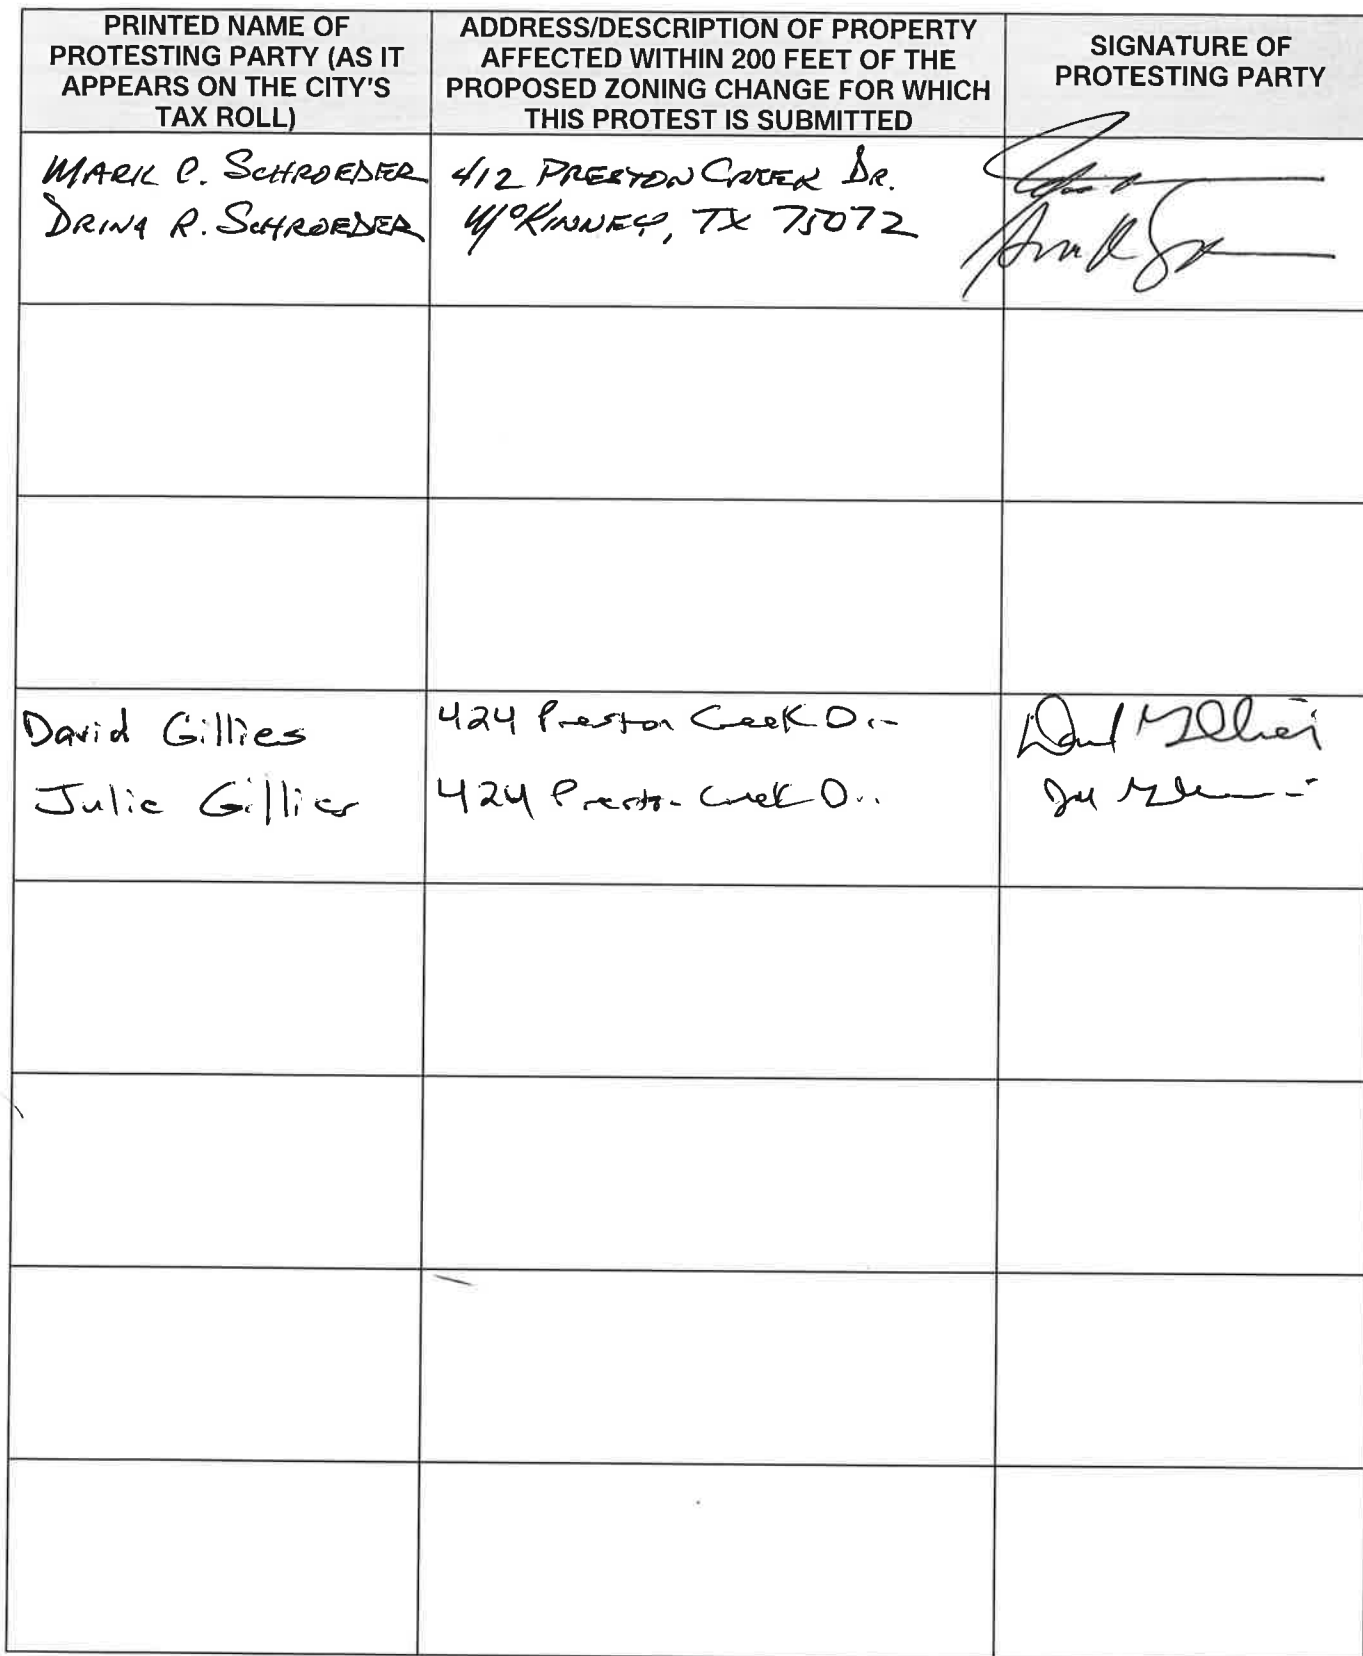 PRINTED NAME OF
PROTESTING PARTY (AS IT
APPEARS ON THE CITY'S
TAX ROLL)
ADDRESS/DESCRIPTION OF PROPERTY
AFFECTED WITHIN 200 FEET OF THE
PROPOSED ZONING CHANGE FOR WHICH
THIS PROTEST IS SUBMITTED
SIGNATURE OF
PROTESTING PARTY
MARK C. SCHROEDER
DRINA R. SCHROEDER
412 PRESTON CREEK DR.
McKINNEY, TX 75072
David Gillies
424 Preston Creek Dr
Julie Gillies
424 Preston Creek Dr.